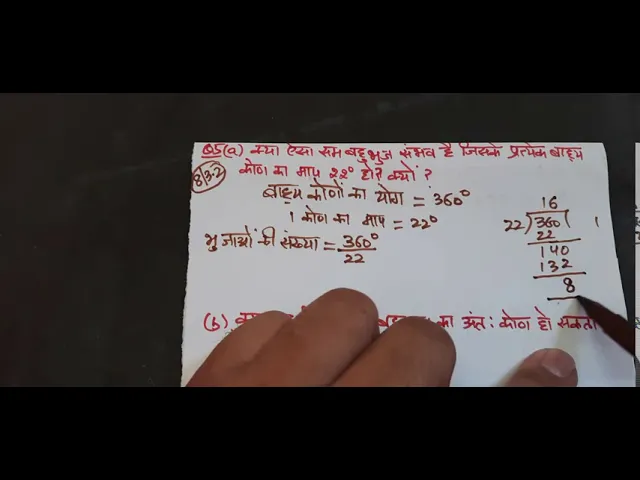 Q5(a) क्या ऐसा सम बहुभुज संभव है जिसके प्रत्येक बाह्य
8/3.2 कोण का माप २२° हो? क्यों ?
बाह्य कोणों का योग = 360°
1 कोण का माप = 22°
भुजाओं की संख्या = 360°/22
16
22)360(
22
140
132
8
(b) का अंतः कोण हो सकता